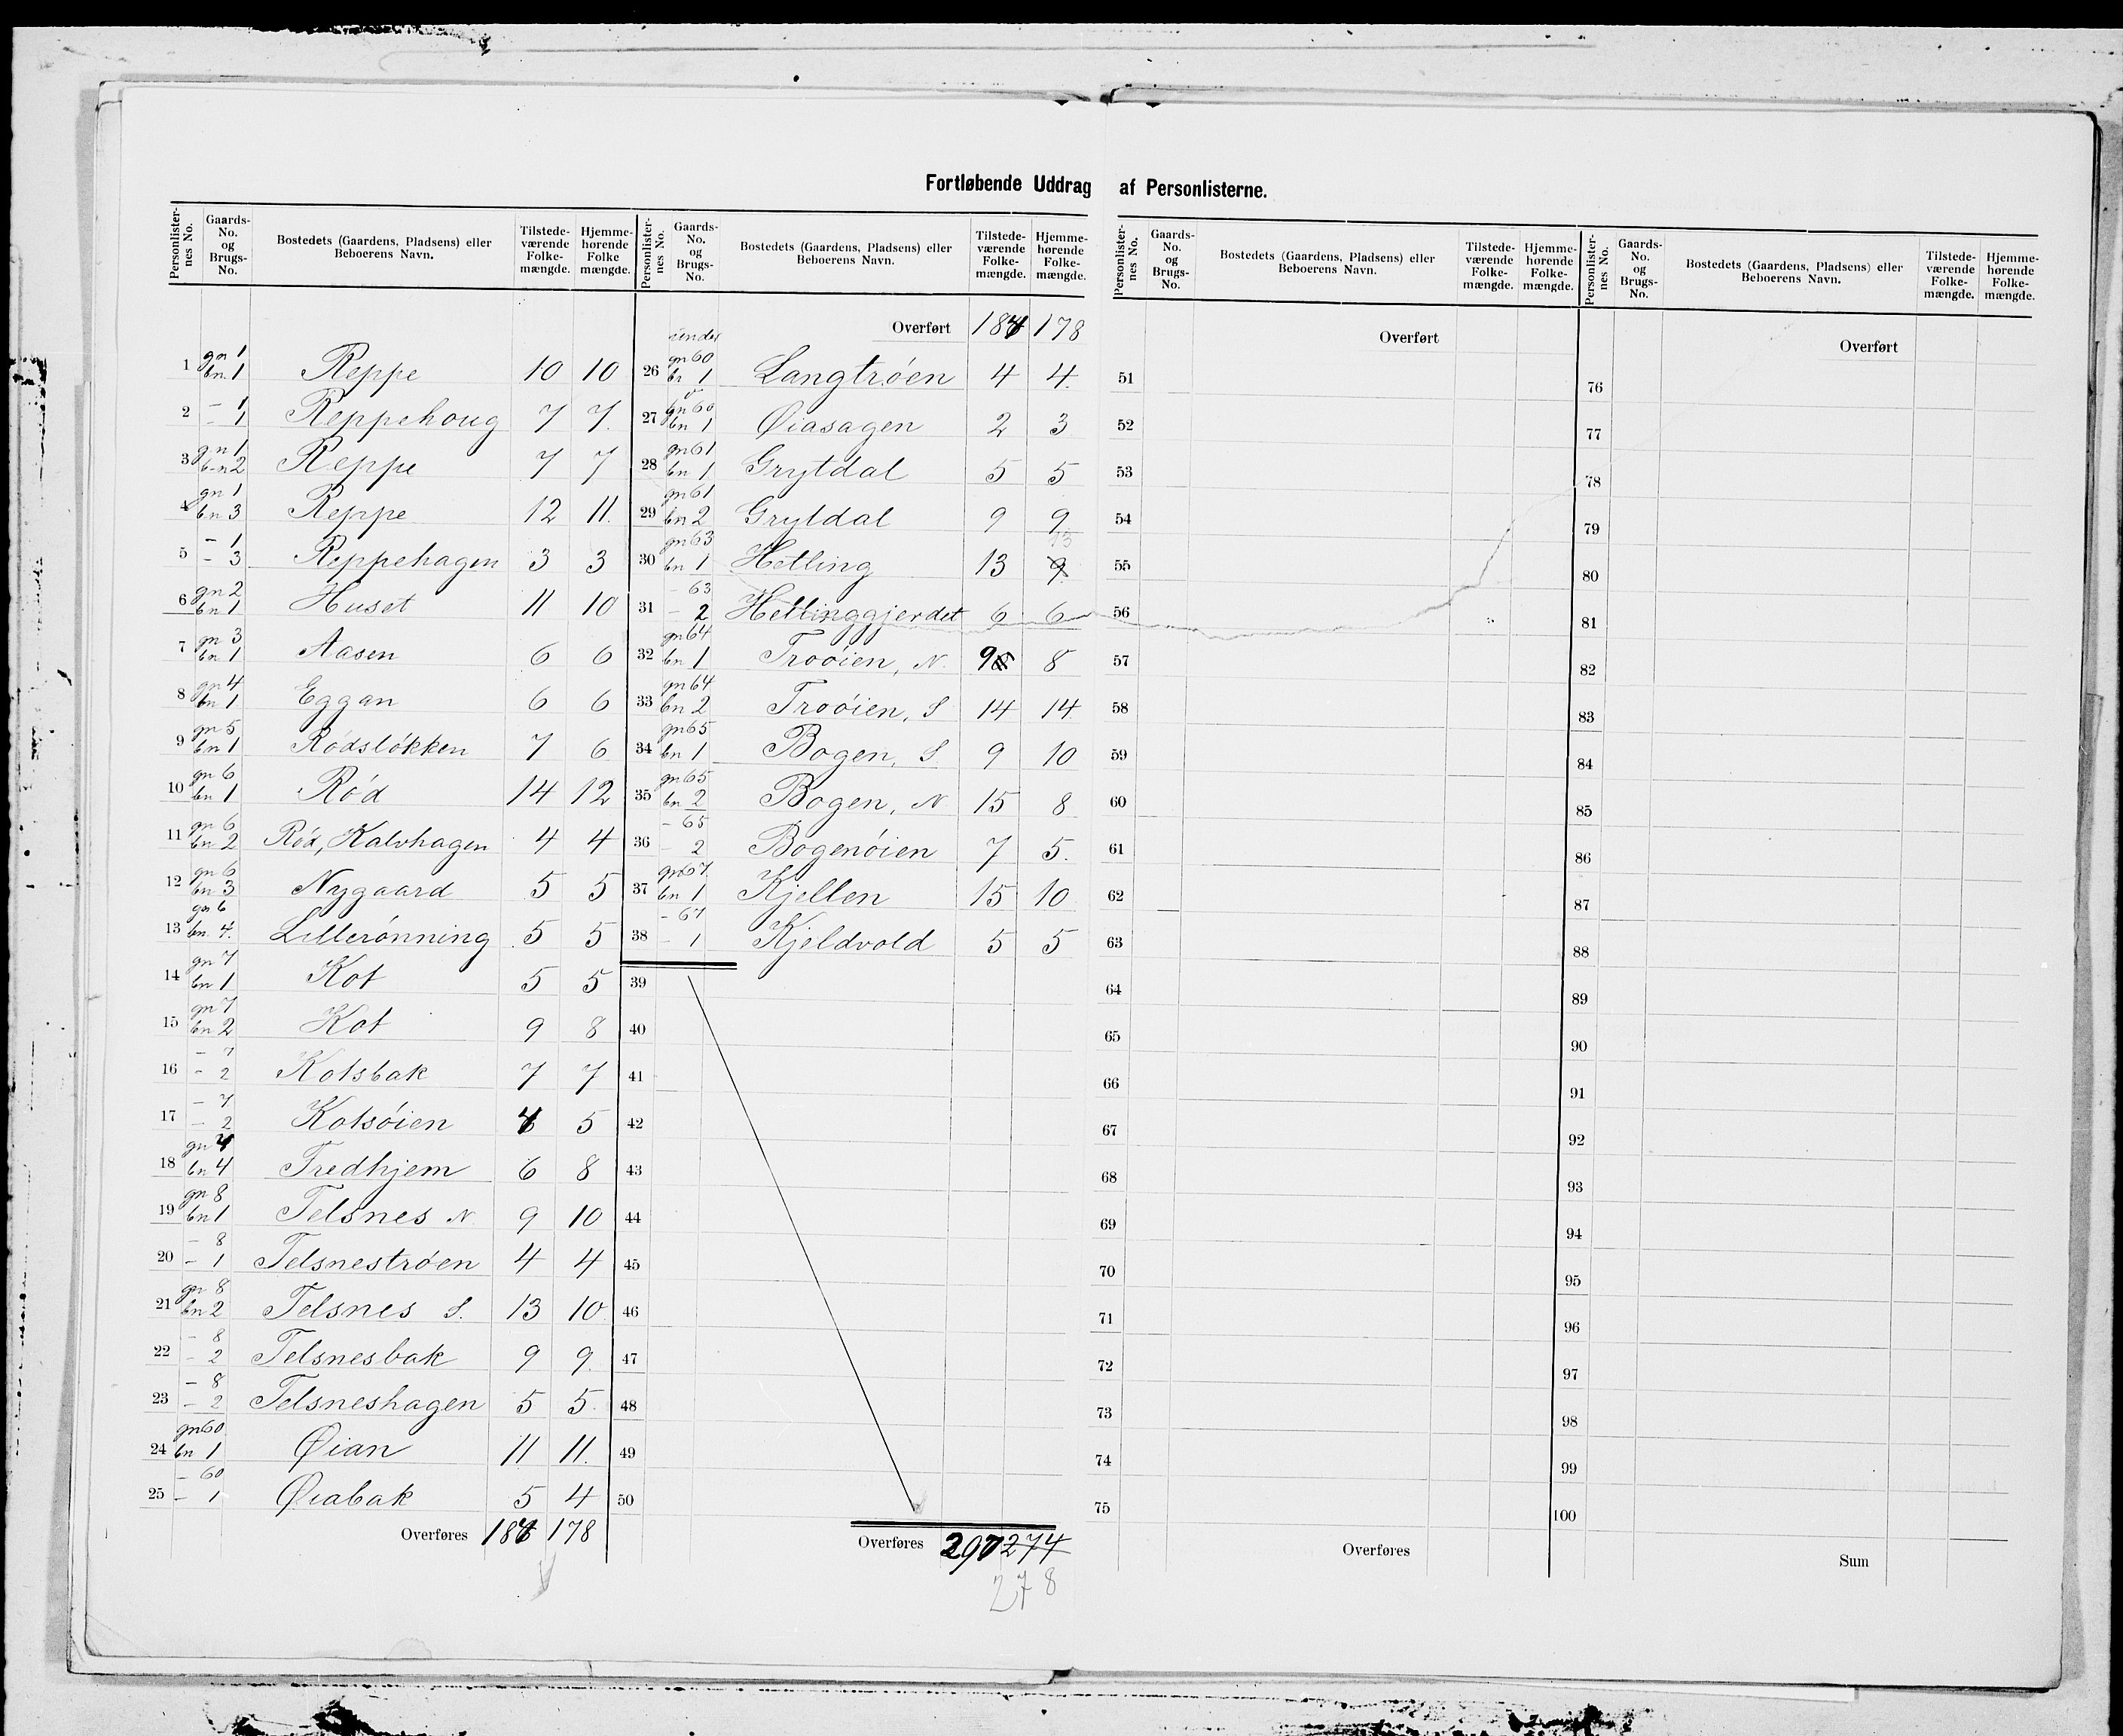 Fortløbende Uddrag af Personlisterne.
Personlister-nes No. Gaards-No. og Brugs-No. Bostedets (Gaardens, Pladsens) eller Beboerens Navn. Tilstede-værende Folke-mængde. Hjemme-hørende Folke mængde.
1 gn 1 bn. 1 Reppe 10 10
2 – 1 – 1 Reppehoug 7 7.
3 gn 1 bn 2 Reppe 7 7
4 gn 1 bn 3 Reppe 12 11.
5 – 1 – 3 Reppehagen 3 3
6 gn 2 bn 1 Huset 11 10
7 gn 3 bn 1 Aasen 6 6
8 gn 4 bn 1 Eggan 6 6
9 gn 5 bn 1 Rödslökken 7 6
10 gn 6 bn 1 Röd 14 12
11 gn 6 bn 2 Röd, Kalvhagen 4 4
12 gn 6 bn 3 Nygaard 5 5
13 gn 6 bn. 4. Lillerönning 5 5
14 gn 7 bn 1 Kot 5 5
15 gn 7 bn 2 Kot 9 8
16 – 7 – 2 Kotsbak 7 7
17 – 7 – 2 Kotsöien 5
18 gn bn 4 Fredhjem 6 8
19 gn 8 bn 1 Telsnes N. 9 10
20 – 8 – 1 Telsneströen 4 4
21 gn 8 bn 2 Telsnes S. 13 10
22 – 8 – 2 Telsnesbak 9 9.
23 – 8 – 2 Telsneshagen 5 5.
24 gn 60 bn 1 Øian 11 11.
25 – 60 – 1 Øiabak 5 4
Overføres 178
Personlister-nes No. Gaards-No. og Brugs-No. Bostedets (Gaardens, Pladsens) eller Beboerens Navn. Tilstede-værende Folke-mængde. Hjemme-hørende Folke-mængde.
Overført 178
26 under gn 60 br 1 Langtröen 4 4.
27 gn 60 bn 1 Øiasagen 2 3
28 gn 61 bn 1 Grytdal 5 5
29 gn 61 bn 2 Grytdal 9 9
30 gn 63 bn 1 Hetling 13 9 13
31 – 63 – 2 Hetlinggjerdet 6 6
32 gn 64 bn 1 Troöien, N. 9 8
33 gn 64 bn 2 Troöien, S 14 14
34 gn 65 bn 1 Bogen, S 9 10
35 gn 65 bn 2 Bogen, N 15 8
36 – 65 – 2 Bogenöien 7 5.
37 gn 67 bn 1 Kjellen 15 10
38 – 67 – 1 Kjeldvold 5 5
39
40
41
42
43
44
45
46
47
48
49
50
Overføres 297 274
278
Personlister-nes No. Gaards-No. og Brugs-No. Bostedets (Gaardens, Pladsens) eller Beboerens Navn. Tilstede-værende Folke-mængde. Hjemme-hørende Folke-mængde.
Overført
51
52
53
54
55
56
57
58
59
60
61
62
63
64
65
66
67
68
69
70
71
72
73
74
75
Overføres
Personlister-nes No. Gaards-No. og Brugs-No. Bostedets (Gaardens, Pladsens) eller Beboerens Navn. Tilstede-værende Folke-mængde. Hjemme-hørende Folke-mængde.
Overført
76
77
78
79
80
81
82
83
84
85
86
87
88
89
90
91
92
93
94
95
96
97
98
99
100
Sum